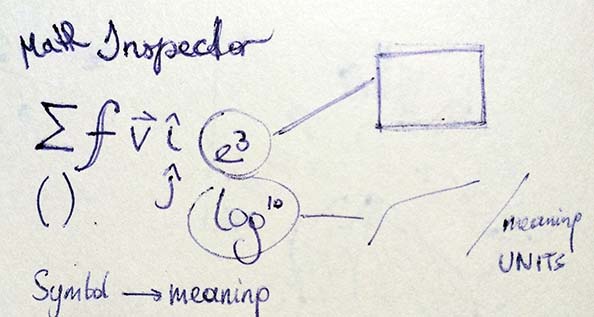 Math Inspector
∑ f v⃗ î e³
( ) ĵ log¹⁰
meaning
UNITS
Symbol → meaning